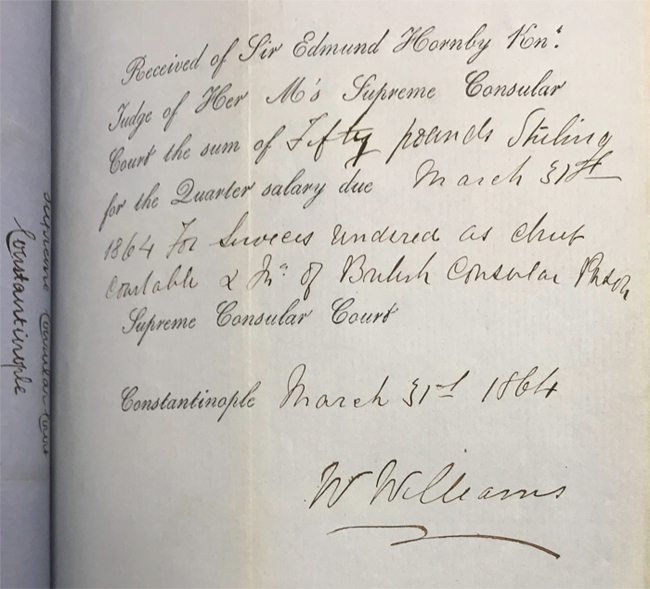 Received of Sir Edmund Hornby Knt.
Judge of Her M's Supreme Consular
Court the sum of Fifty pounds Sterling
for the Quarter salary due March 31st
1864 For Services rendered as chief
Constable & of British Consular Prison
Supreme Consular Court
Constantinople March 31st 1864
W Williams
Supreme Consular Court
Constantinople